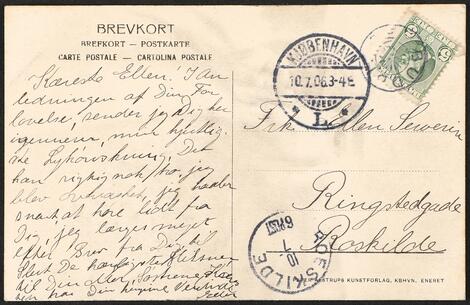 BREVKORT
BREFKORT — POSTKARTE
CARTE POSTALE — CARTOLINA POSTALE
Kæreste Ellen! I An
ledningen af Din For
lovelse, sender jeg Dig her
igennem, min hjertelig
ste Lykønskning. Det
kan rigtig nok tro, jeg
blev overrasket, jeg haaber
snart at høre lidt fra
Dig, jeg længes meget
efter Brev fra Dig, til
Slut De kærligste Hilsner
til Din Mor,
fra Din hengivne Veninde
KJØBENHAVN
10.7.06.3-4E
L.
5
Frk. Ellen Severin
Ringstedgade
Roskilde.
ROESKILDE
10 7
6 POST
KUNSTFORLAG, KBHVN. ENERET